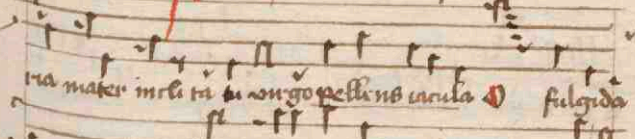 ria mater incli ta tu virgo pellens iacula O fulgida